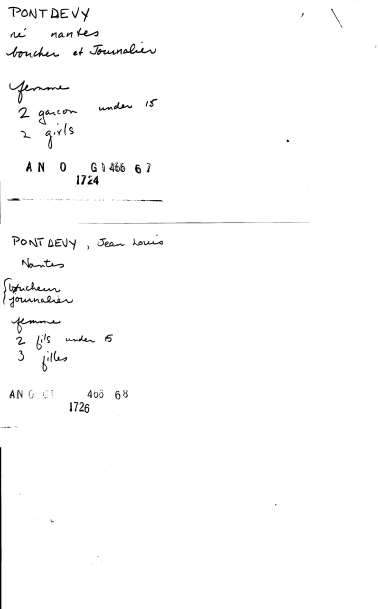 PONTDEVY
né nantes
boucher et Journalier
femme
2 garcon under 15
2 girls
AN O G1 466 67
1724
PONTDEVY, Jean Louis
Nantes
boucheur
journalier
femme
2 fils under 15
3 filles
AN O G1 466 68
1726